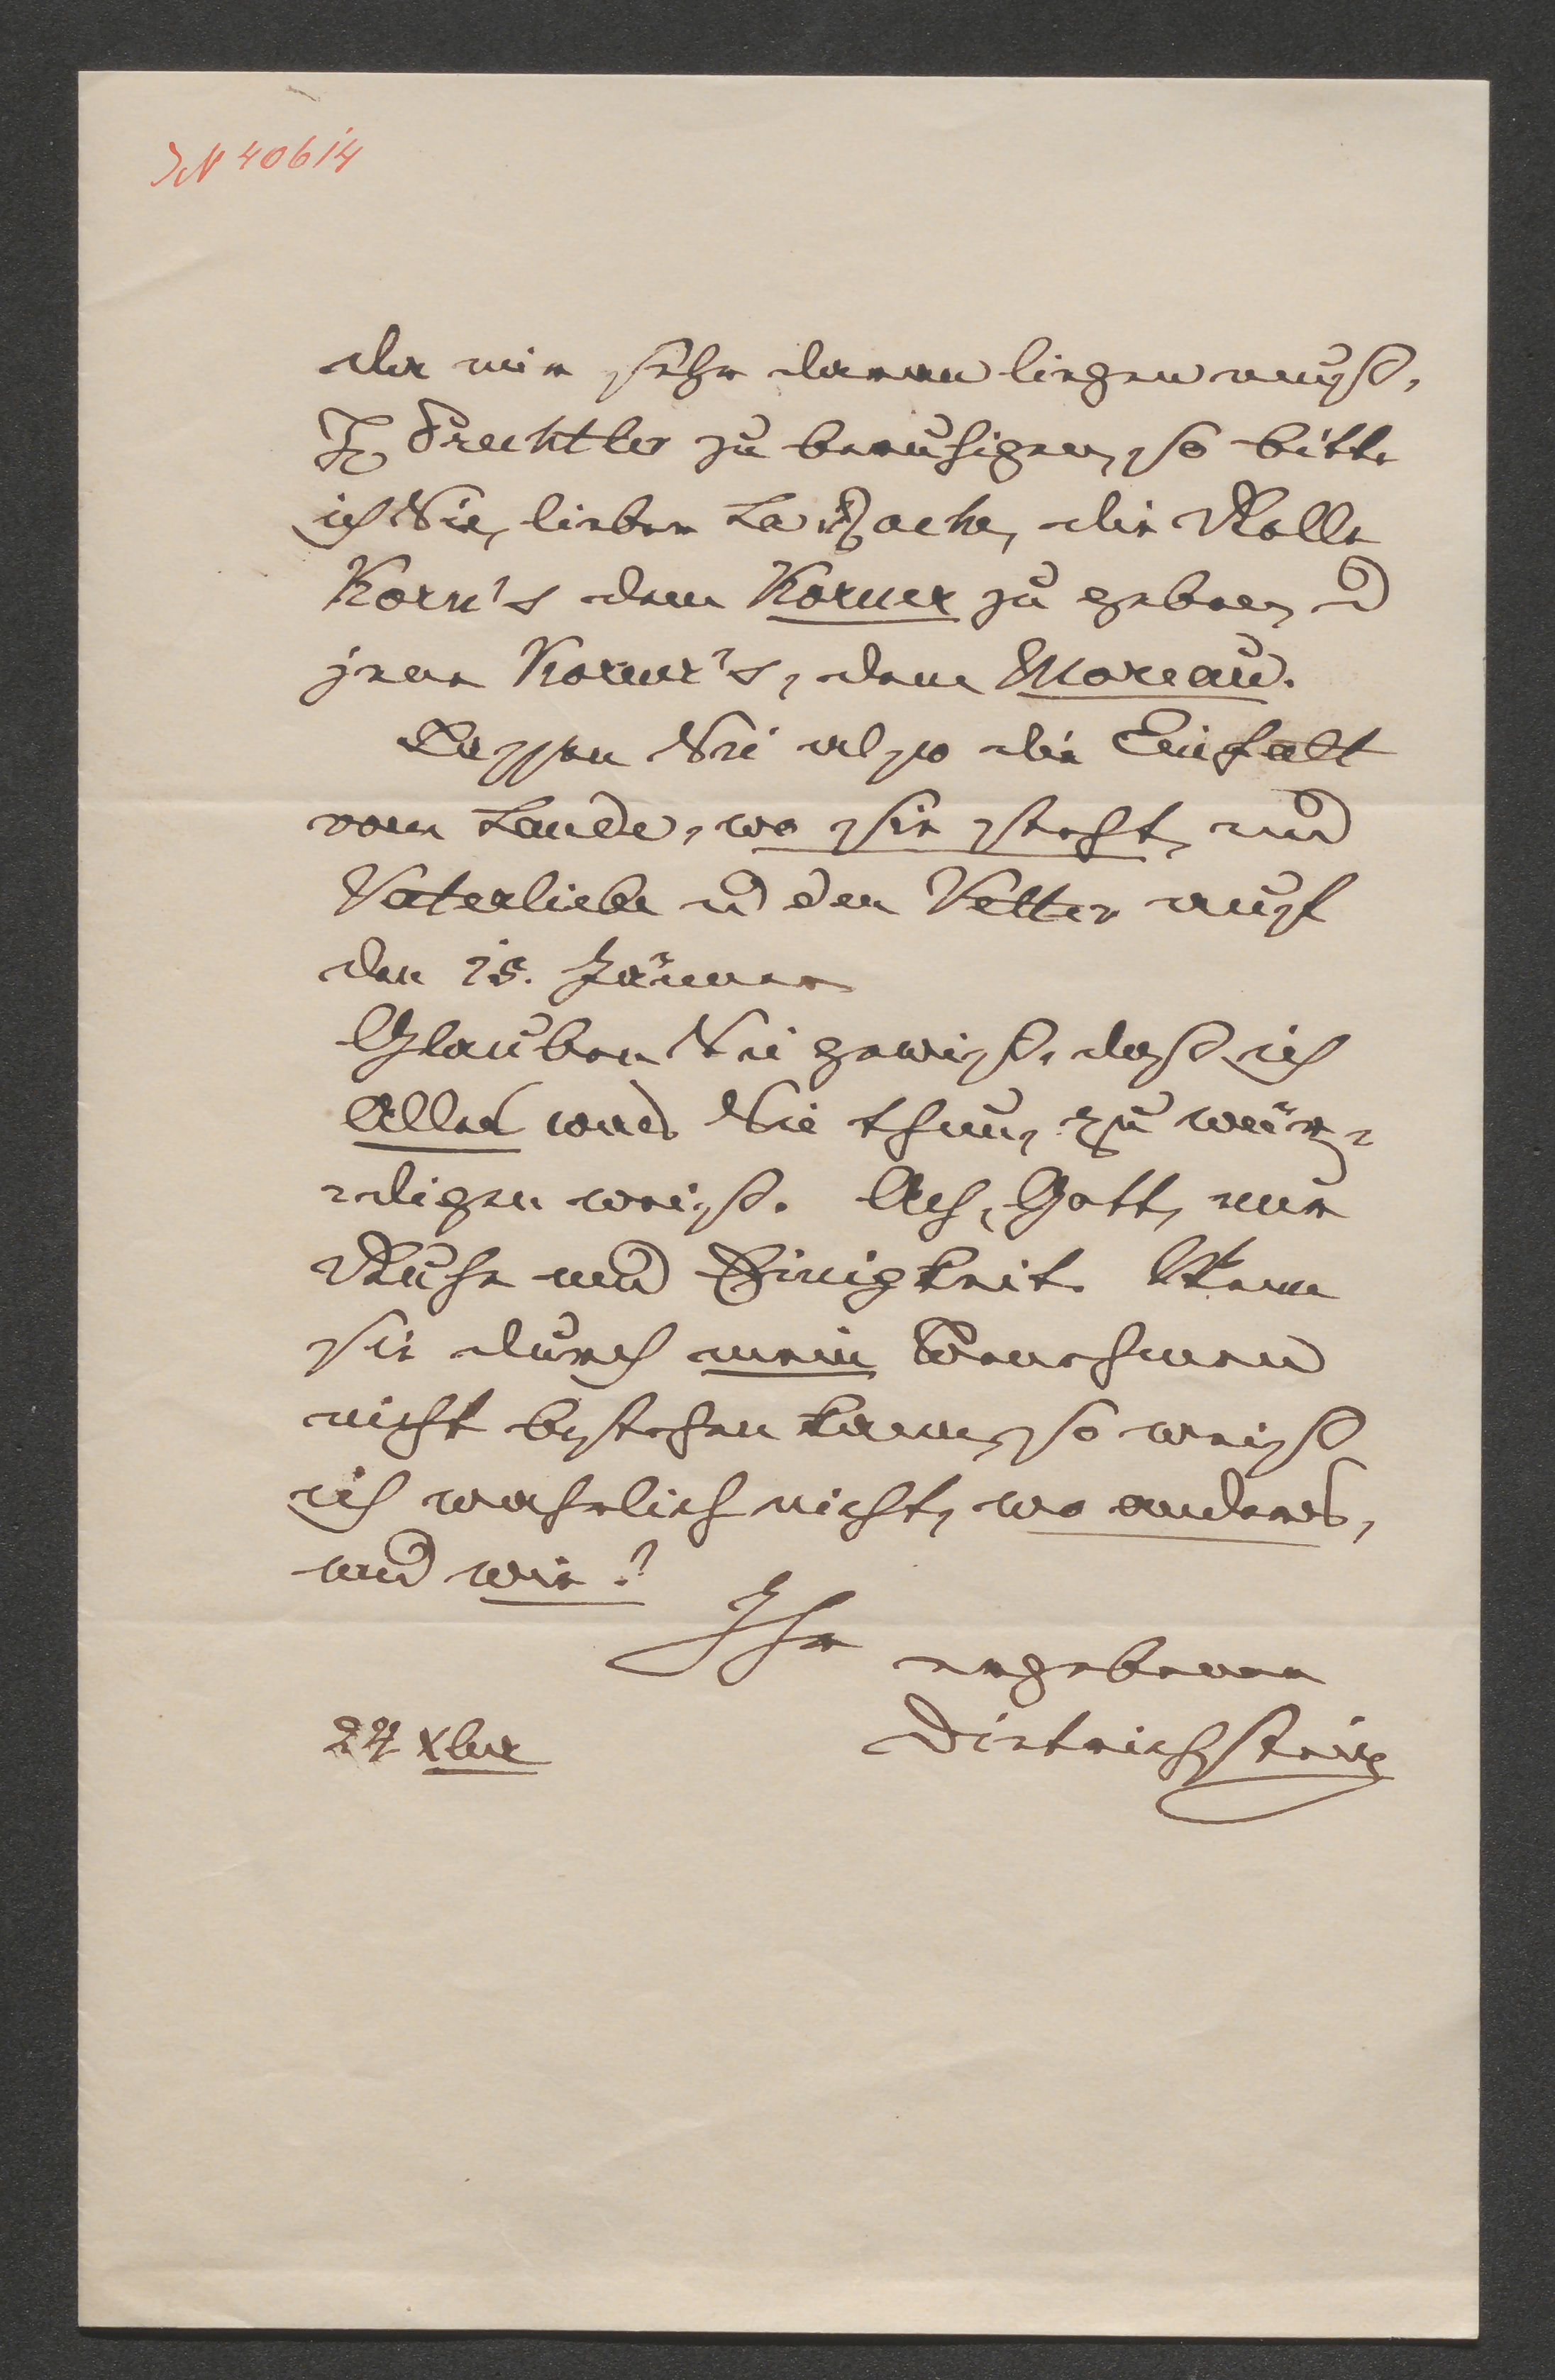 IN 40614
da mir sehr daran liegen muß,
H Prechtler zu beruhigen, so bitte
ich Sie, lieber La Roche, die Rolle
Korn's dem Korner zu geben, u
jene Korner's, dem Moreau.
Lassen Sie also die Einfalt
vom Lande, wo sie steht, und
Vaterliebe u den Vetter auf
den 15. Jänner
Glauben Sie gewiß, daß ich
Alles was Sie thun, zu wür-
-digen weiß. Ach, Gott, nur
Ruhe und Einigkeit. Wenn
sie durch mein Benehmen
nicht bestehen kann, so weiß
ich wahrlich nicht, wo anders,
und wie?
Ihr
ergebener
24 Xber Dietrichstein